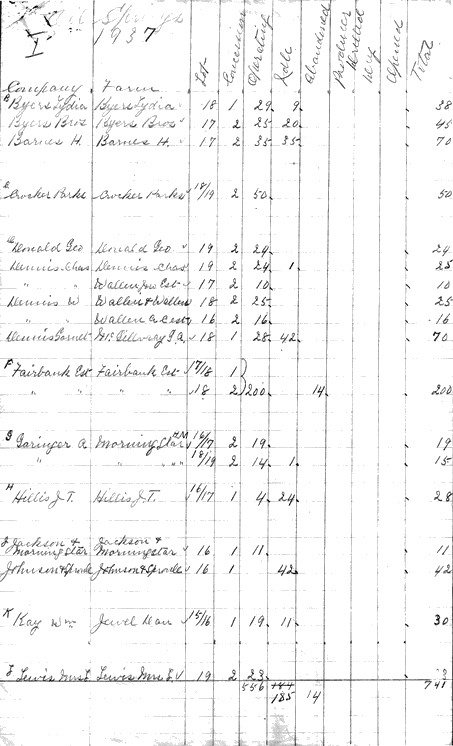 Oil Springs
I 1937
Company Farm Lot Concession Operating Idle Abandoned Producer Drilled Dry Opened Total
B Byers Lydia Byers Lydia 18 1 29 9 38
Byers Bros Byers Bros 17 2 25 20 45
Barnes H. Barnes H. 17 2 35 35 70
C Crocker Parks Crocker Parks 18/19 2 50 50
D Donald Geo Donald Geo 19 2 24 24
Dennis Chas Dennis Chas 19 2 24 1 25
" " Wallen Est 17 2 10 10
Dennis W Wallen & Wallen 18 2 25 25
Wallen Est 16 2 16 16
Dennis Garnet 18 1 28 42 70
F Fairbank Est Fairbank Est 17/18 1
" " " " 18 2 200 14 200
G Garinger A Morningstar 16/17 2 19 19
" " " 18/19 2 14 1 15
H Hillis J.T. Hillis J.T. 16/17 1 4 24 28
J Jackson & Jackson &
Morningstar Morningstar 16 1 11 11
Johnson & Sproule Johnson & Sproule 16 1 42 42
K Kay Wm Jewel 15/16 1 19 11 30
L Lewis Mrs L Lewis Mrs L 19 2 23 3
556 184 741
185 14